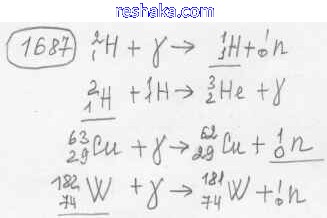 reshaka.com
1687 ²₁H + γ → ¹₁H + ¹₀n
²₁H + ¹₁H → ³₂He + γ
⁶³₂₉Cu + γ → ⁶²₂₉Cu + ¹₀n
¹⁸²₇₄W + γ → ¹⁸¹₇₄W + ¹₀n